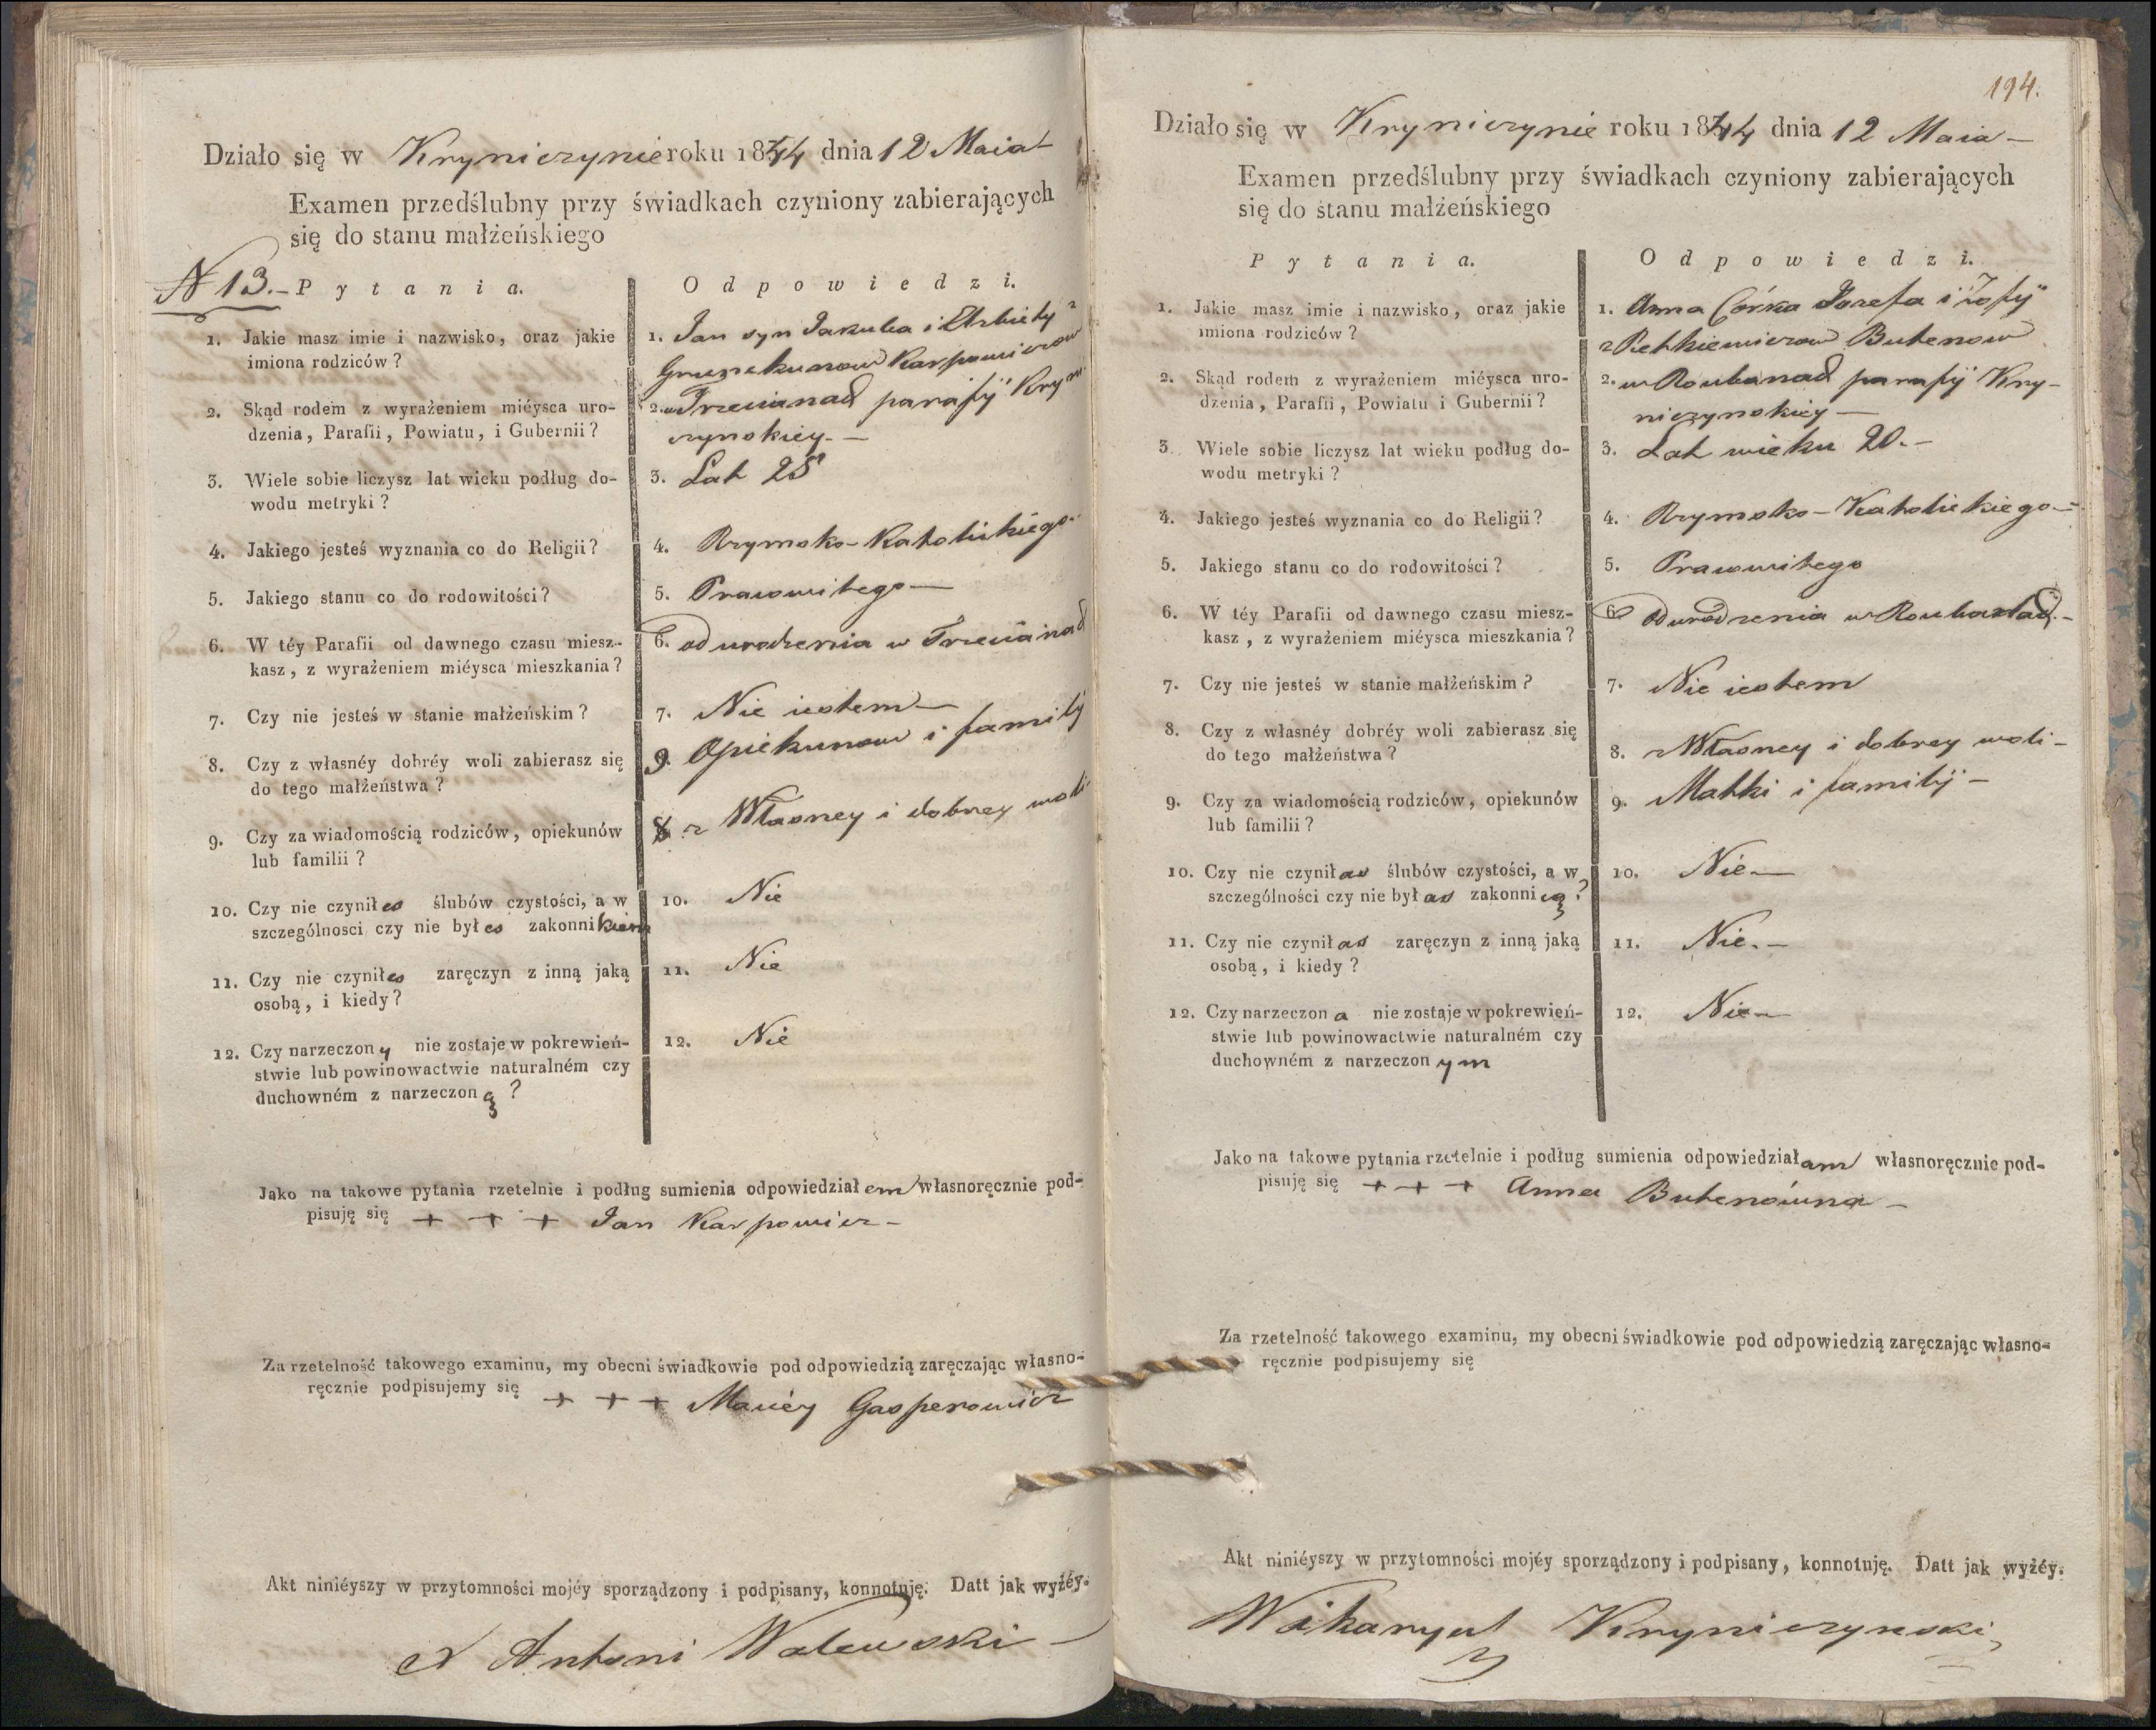 Działo się w Kryniczynie roku 1844 dnia 12 Maia
Examen przedślubny przy świadkach czyniony zabierających
się do stanu małżeńskiego
N 13. Pytania. Odpowiedzi.
1. Jakie masz imie i nazwisko, oraz jakie
imiona rodziców?
1. Jan syn Jakuba i Elzbiety z
Karpowiczow
2. Skąd rodem z wyrażeniem miéysca uro-
dzenia, Parafii, Powiatu, i Gubernii?
2. w parafij Kryni
czynskiey. —
3. Wiele sobie liczysz lat wieku podług do-
wodu metryki?
3. Lat 25
4. Jakiego jesteś wyznania co do Religii?
4. Rzymsko-Katolickiego.
5. Jakiego stanu co do rodowitości?
5. Prawowitego —
6. W téy Parafii od dawnego czasu miesz-
kasz, z wyrażeniem miéysca mieszkania?
6. od urodzenia w
7. Czy nie jesteś w stanie małżeńskim?
7. Nie iestem —
8. Czy z własnéy dobréy woli zabierasz się
do tego małżeństwa?
9. Opiekunow i familij
9. Czy za wiadomością rodziców, opiekunów
lub familii?
8. z Własney i dobrey woli
10. Czy nie czyniłes ślubów czystości, a w
szczególnosci czy nie byłes zakonnikiem
10. Nie
11. Czy nie czyniłes zaręczyn z inną jaką
osobą, i kiedy?
11. Nie
12. Czy narzeczony nie zostaje w pokrewień-
stwie lub powinowactwie naturalném czy
duchowném z narzeczoną?
12. Nie
Jako na takowe pytania rzetelnie i podług sumienia odpowiedziałem własnoręcznie pod-
pisuję się + + + Jan Karpowicz —
Za rzetelność takowego examinu, my obecni świadkowie pod odpowiedzią zaręczając własno-
ręcznie podpisujemy się + + + Maciéy Gasperowicz
Akt niniéyszy w przytomności mojéy sporządzony i podpisany, konnotuję. Datt jak wyżéy.
X Antoni Walewski —
194.
Działo się w Kryniczynie roku 1844 dnia 12 Maia —
Examen przedślubny przy świadkach czyniony zabierających
się do stanu małżeńskiego
Pytania. Odpowiedzi.
1. Jakie masz imie i nazwisko, oraz jakie
imiona rodziców?
1. Anna Córka Jozefa i Zofij
z Petkiewiczow Butenow
2. Skąd rodem z wyrażeniem miéysca uro-
dzenia, Parafii, Powiatu i Gubernii?
2. w parafij Kry-
niczynskiey —
3. Wiele sobie liczysz lat wieku podług do-
wodu metryki?
3. Lat wieku 20. —
4. Jakiego jesteś wyznania co do Religii?
4. Rzymsko-Katolickiego —
5. Jakiego stanu co do rodowitości?
5. Prawowitego
6. W téy Parafii od dawnego czasu miesz-
kasz, z wyrażeniem miéysca mieszkania?
6. od urodzenia w
7. Czy nie jesteś w stanie małżeńskim?
7. Nie iestem
8. Czy z własnéy dobréy woli zabierasz się
do tego małżeństwa?
8. z Własney i dobrey woli —
9. Czy za wiadomością rodziców, opiekunów
lub familii?
9. Matki i familij —
10. Czy nie czyniłas ślubów czystości, a w
szczególności czy nie byłas zakonnicą?
10. Nie —
11. Czy nie czyniłas zaręczyn z inną jaką
osobą, i kiedy?
11. Nie. —
12. Czy narzeczona nie zostaje w pokrewień-
stwie lub powinowactwie naturalném czy
duchowném z narzeczonym
12. Nie —
Jako na takowe pytania rzetelnie i podług sumienia odpowiedziałam własnoręcznie pod-
pisuję się + + + Anna Butenówna —
Za rzetelność takowego examinu, my obecni świadkowie pod odpowiedzią zaręczając własno-
ręcznie podpisujemy się
Akt niniéyszy w przytomności mojéy sporządzony i podpisany, konnotuję. Datt jak wyżéy.
Wikaryusz Kryniczynski